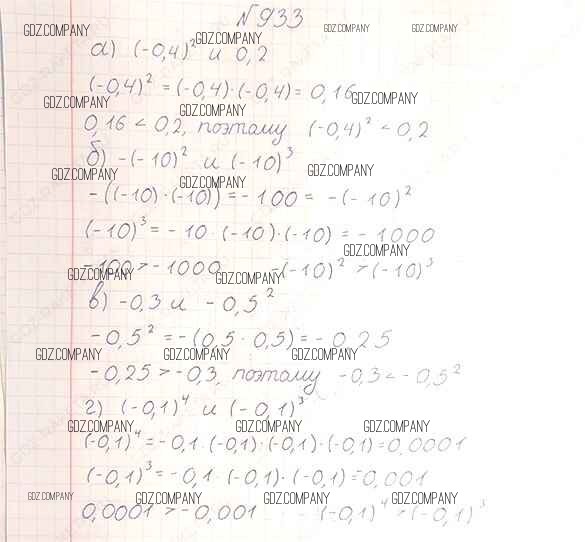 №933
GDZ.COMPANY GDZ.COMPANY GDZ.COMPANY GDZ.COMPANY
а) (-0,4)² и 0,2
(-0,4)² = (-0,4)·(-0,4) = 0,16
GDZ.COMPANY GDZ.COMPANY GDZ.COMPANY
0,16 < 0,2, поэтому (-0,4)² < 0,2
б) -(-10)² и (-10)³
GDZ.COMPANY GDZ.COMPANY GDZ.COMPANY
-((-10)·(-10)) = -100 = -(-10)²
(-10)³ = -10·(-10)·(-10) = -1000
GDZ.COMPANY
-100 > -1000 -(-10)² > (-10)³
GDZ.COMPANY GDZ.COMPANY
в) -0,3 и -0,5²
-0,5² = -(0,5·0,5) = -0,25
GDZ.COMPANY GDZ.COMPANY GDZ.COMPANY
-0,25 > -0,3, поэтому -0,3 < -0,5²
г) (-0,1)⁴ и (-0,1)³
GDZ.COMPANY GDZ.COMPANY GDZ.COMPANY
(-0,1)⁴ = -0,1·(-0,1)·(-0,1)·(-0,1) = 0,0001
(-0,1)³ = -0,1·(-0,1)·(-0,1) = -0,001
GDZ.COMPANY GDZ.COMPANY GDZ.COMPANY GDZ.COMPANY
0,0001 > -0,001 (-0,1)⁴ > (-0,1)³